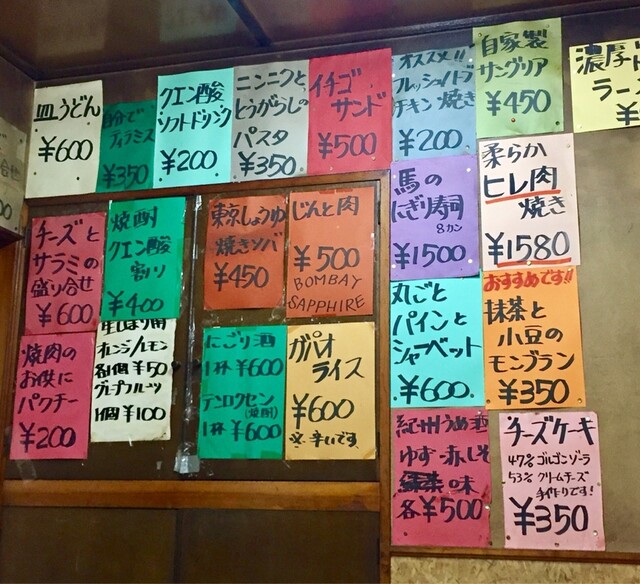 皿うどん
¥600
自分で
ティラミス
¥350
クエン酸
ソフトドリンク
¥200
ニンニクと
とうがらしの
パスタ
¥350
イチゴ
サンド
¥500
オススメ!!
フレッシュハラ
チキン焼き
¥200
自家製
サングリア
¥450
濃厚
ラーメ
チーズと
サラミの
盛り合せ
¥600
焼酎
クエン酸
割り
¥400
東京しょうゆ
焼きソバ
¥450
じんと肉
¥500
BOMBAY
SAPPHIRE
馬の
にぎり寿司
8カン
¥1500
柔らか
ヒレ肉
焼き
¥1580
焼肉の
お供に
パクチー
¥200
生しぼり用
オレンジ/レモン
各1個¥50
グレープフルーツ
1個¥100
にごり酒
1杯¥600
テンロクセン
(焼酎)
1杯¥600
ガパオ
ライス
¥600
※辛いです
丸ごと
パインと
シャーベット
¥600.
おすすめです!!
抹茶と
小豆の
モンブラン
¥350
紀州うめ酒
ゆず・赤しそ
緑茶味
各¥500
チーズケーキ
47%ゴルゴンゾーラ
53%クリームチーズ
手作りです!
¥350